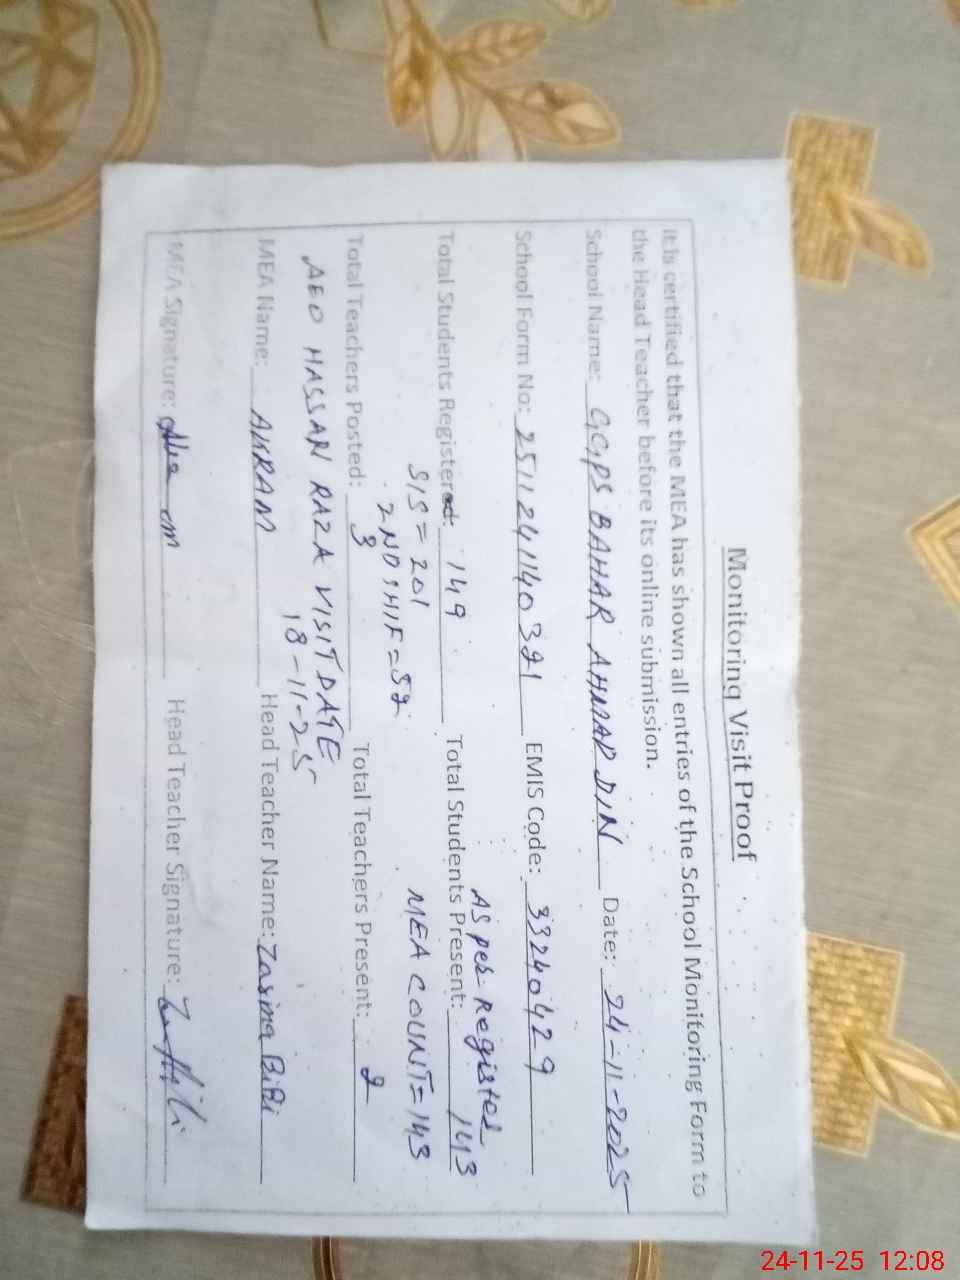 Monitoring Visit Proof
It is certified that the MEA has shown all entries of the School Monitoring Form to
the Head Teacher before its online submission.
School Name: GGPS BAHAR AHMAD DIN Date: 24-11-2025
School Form No: 2511241140321 EMIS Code: 33240429
As per Register
Total Students Registered: 149 Total Students Present: 143
SIS = 201 MEA COUNT = 143
2ND SHIF = 52
Total Teachers Posted: 3 Total Teachers Present: 2
AEO HASSAN RAZA VISIT DATE
18-11-25
MEA Name: AKRAM Head Teacher Name: Zarima BiBi
MEA Signature: Head Teacher Signature:
24-11-25 12:08